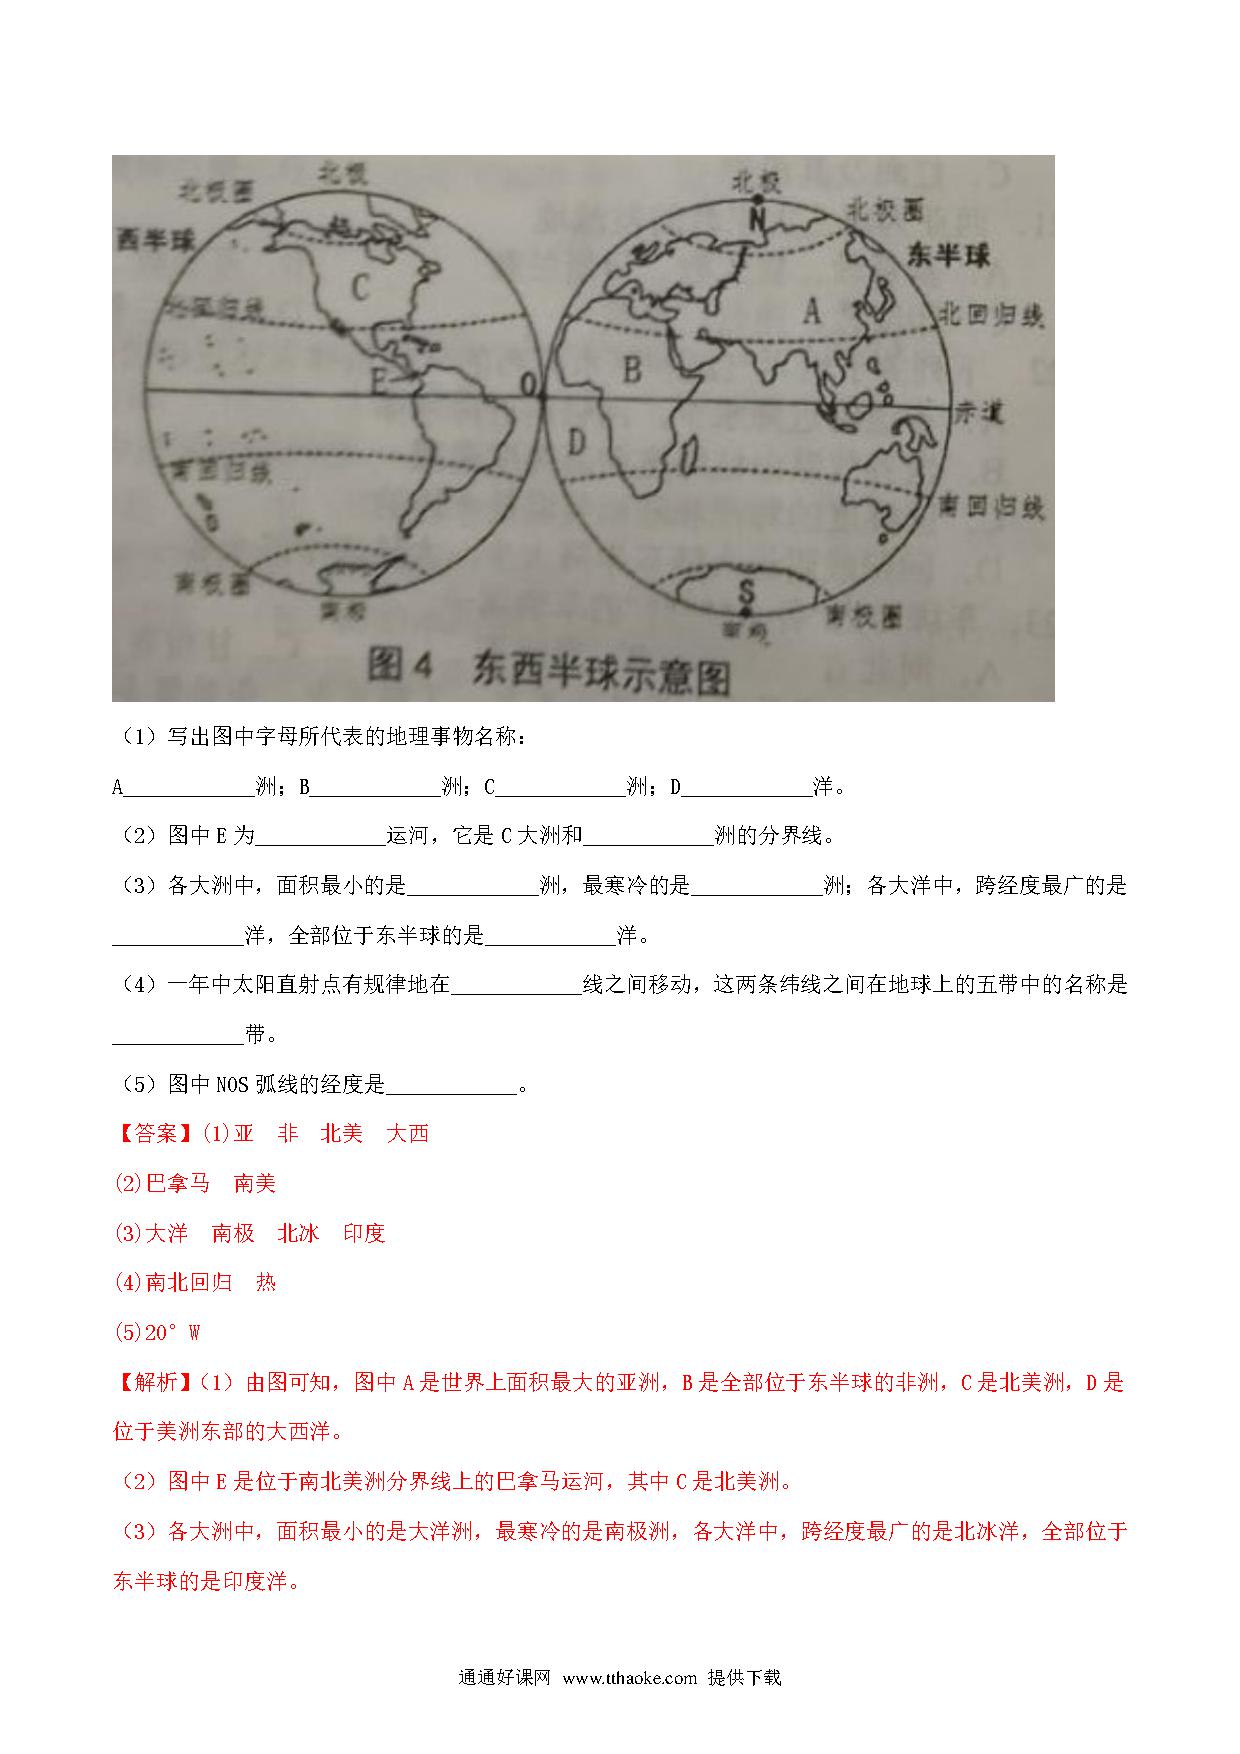 北极
北极圈
西半球
C
北回归线
E
O
南回归线
南极圈
南极
北极
N
北极圈
东半球
A
北回归线
B
赤道
D
南回归线
S
南极圈
南极
图4 东西半球示意图
（1）写出图中字母所代表的地理事物名称：
A____________洲；B____________洲；C____________洲；D____________洋。
（2）图中 E 为____________运河，它是 C 大洲和____________洲的分界线。
（3）各大洲中，面积最小的是____________洲，最寒冷的是____________洲；各大洋中，跨经度最广的是
____________洋，全部位于东半球的是____________洋。
（4）一年中太阳直射点有规律地在____________线之间移动，这两条纬线之间在地球上的五带中的名称是
____________带。
（5）图中 NOS 弧线的经度是____________。
【答案】(1)亚 非 北美 大西
(2)巴拿马 南美
(3)大洋 南极 北冰 印度
(4)南北回归 热
(5)20° W
【解析】（1）由图可知，图中 A 是世界上面积最大的亚洲，B 是全部位于东半球的非洲，C 是北美洲，D 是
位于美洲东部的大西洋。
（2）图中 E 是位于南北美洲分界线上的巴拿马运河，其中 C 是北美洲。
（3）各大洲中，面积最小的是大洋洲，最寒冷的是南极洲，各大洋中，跨经度最广的是北冰洋，全部位于
东半球的是印度洋。
通通好课网 www.tthaoke.com 提供下载